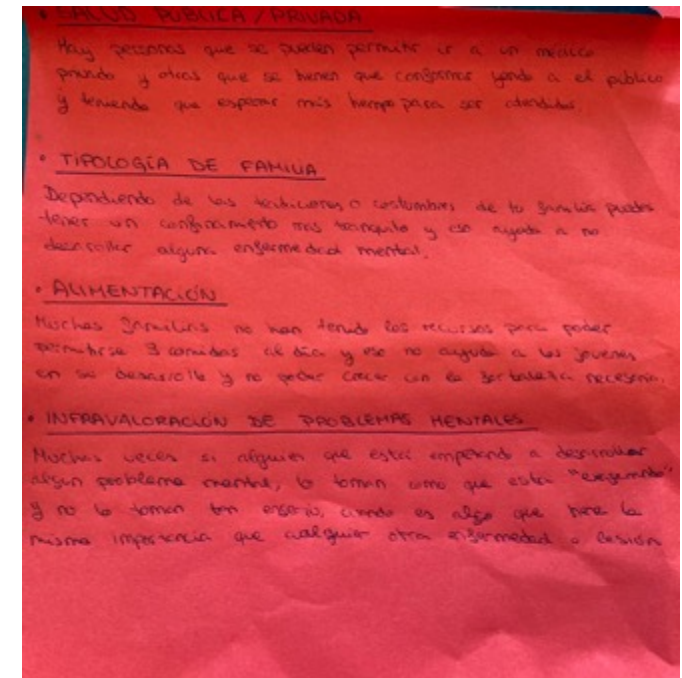 • SALUD PÚBLICA / PRIVADA
Hay personas que se pueden permitir ir a un médico
privado y otras que se tienen que conformar yendo a el público
y teniendo que esperar más tiempo para ser atendidos.
• TIPOLOGÍA DE FAMILIA
Dependiendo de las tradiciones o costumbres de tu familia puedes
tener un confinamiento más tranquilo y eso ayuda a no
desarrollar alguna enfermedad mental.
• ALIMENTACIÓN
Muchas familias no han tenido los recursos para poder
permitirse 3 comidas al día y eso no ayuda a los jóvenes
en su desarrollo y no poder crecer con la fortaleza necesaria.
• INFRAVALORACIÓN DE PROBLEMAS MENTALES
Muchas veces si alguien que está empezando a desarrollar
algún problema mental, lo toman como que está "exagerando"
y no lo toman tan enserio, cuando es algo que tiene la
misma importancia que cualquier otra enfermedad o lesión